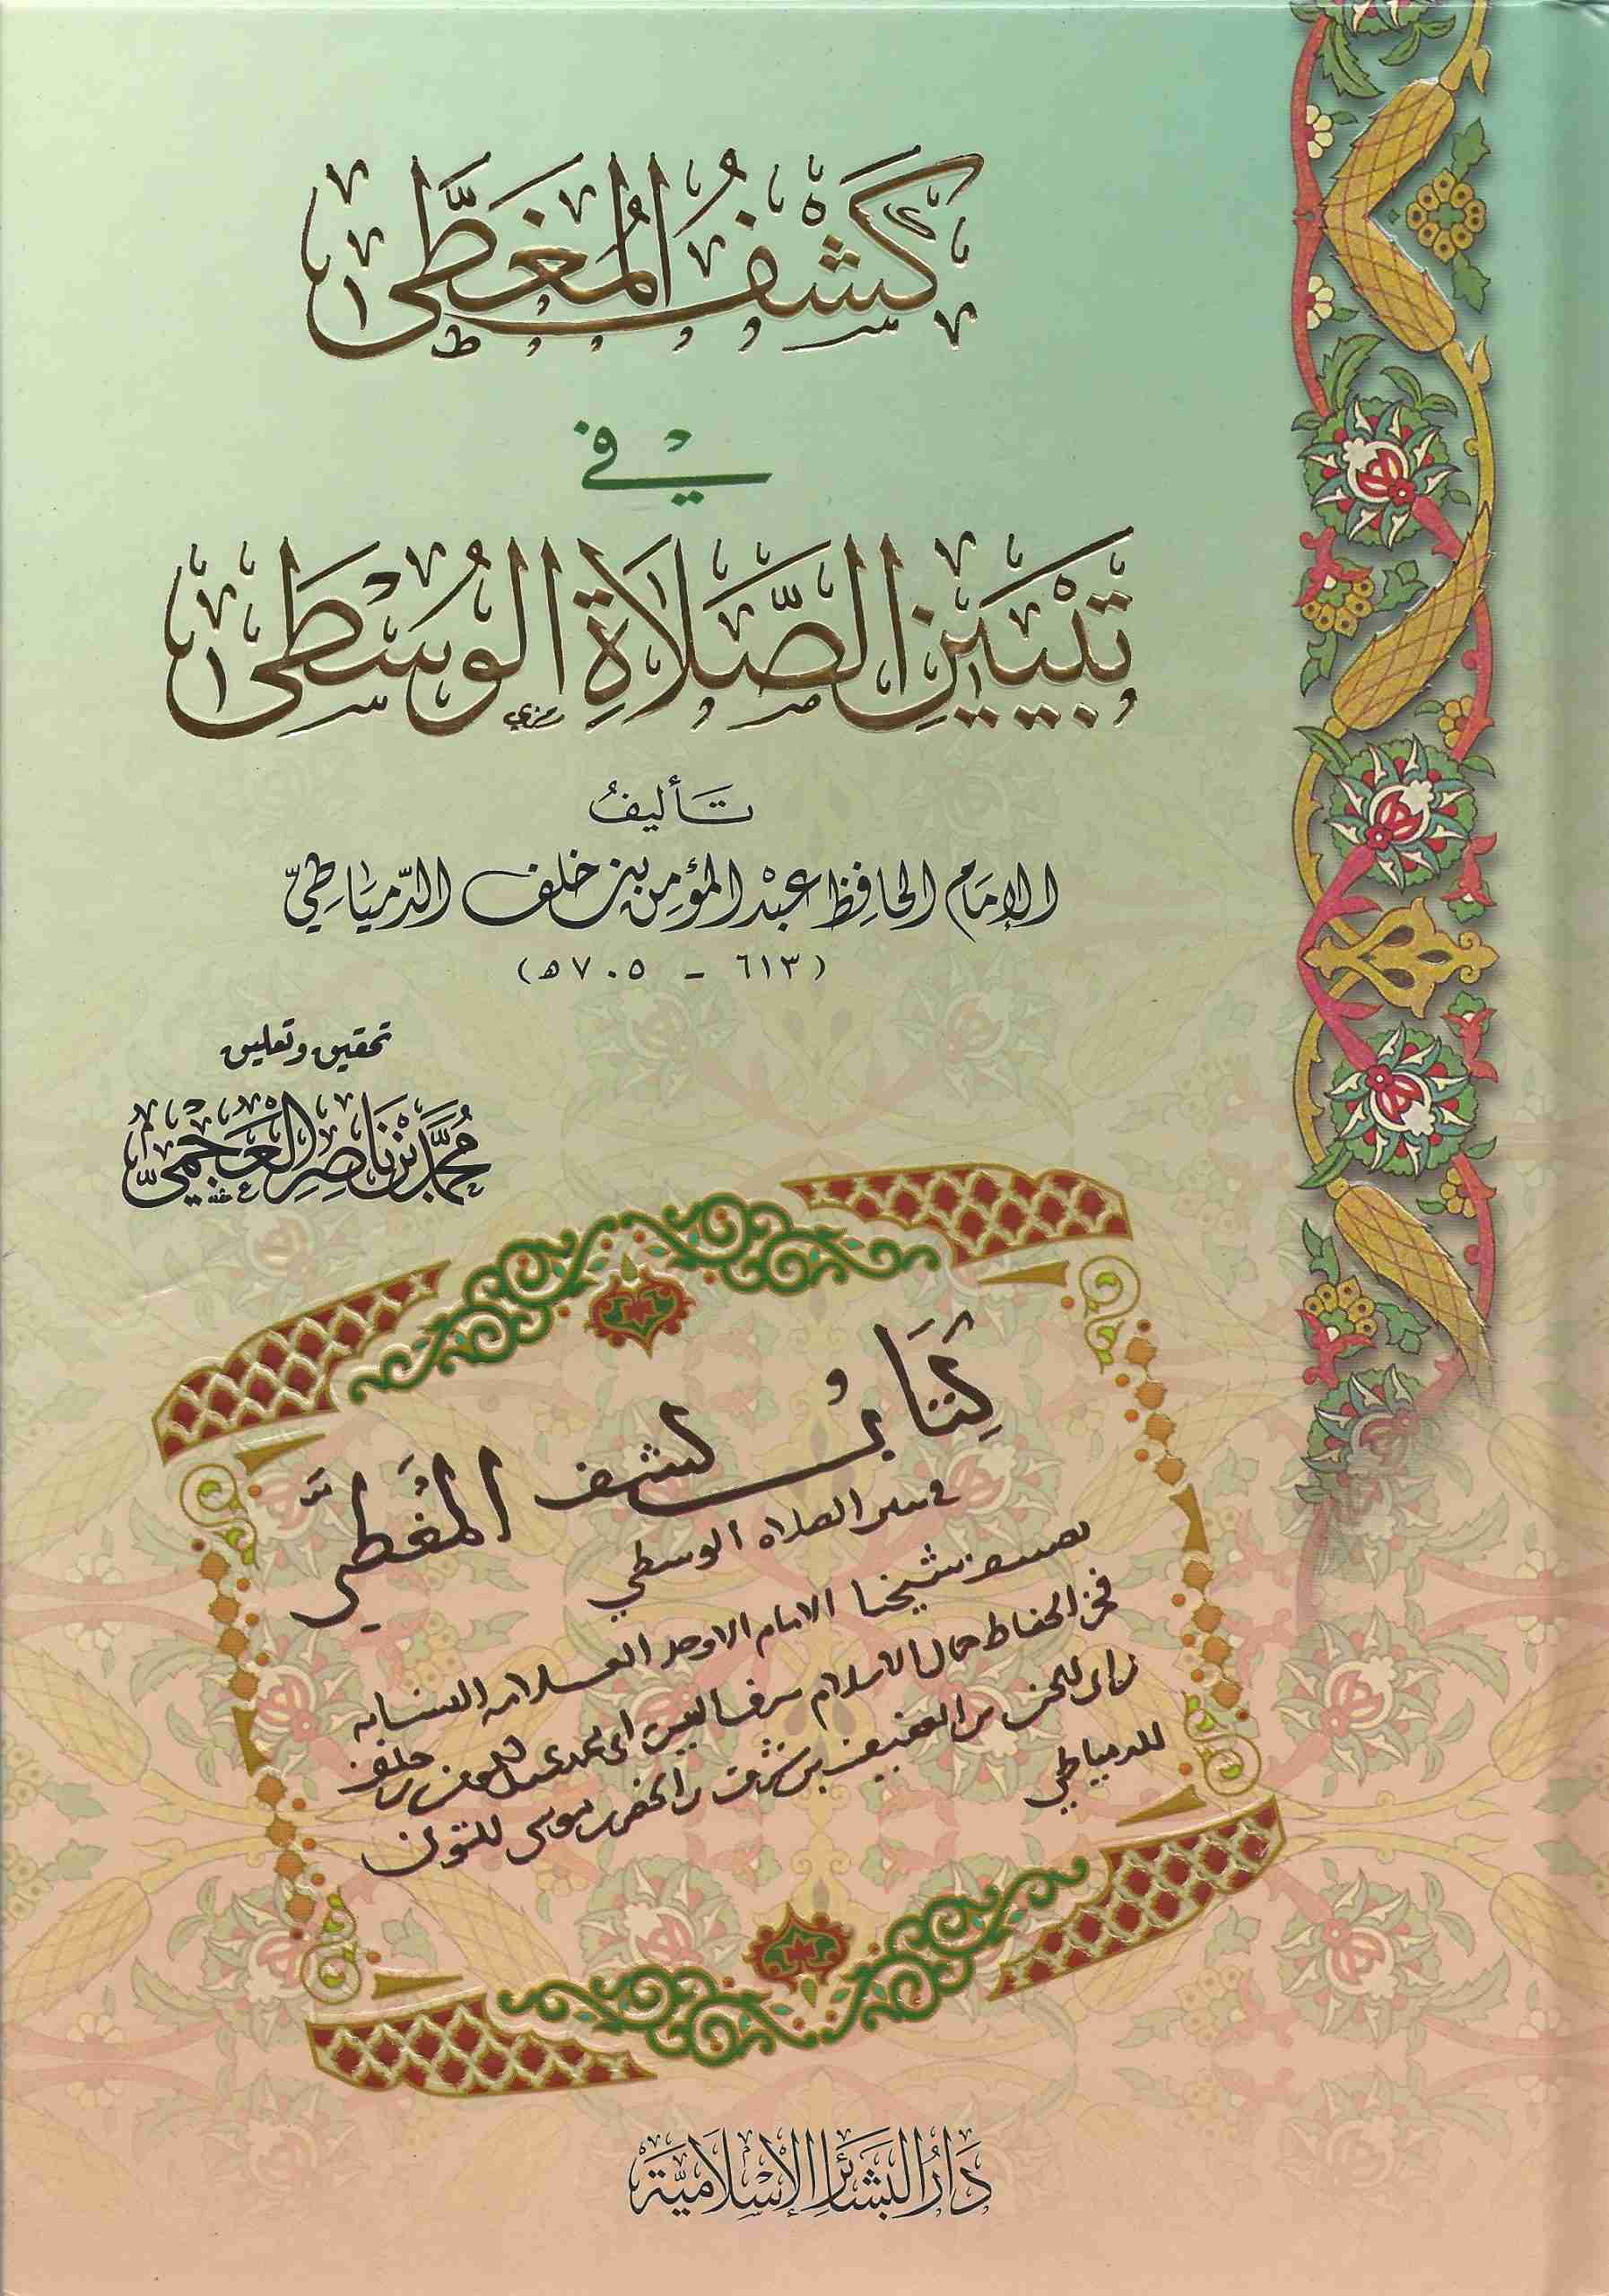 كَشْفُ المُغَطَّى
في
تَبْيِينِ الصَّلَاةِ الوُسْطَى
تأليفُ
الإمَام الحَافِظ عبْد المؤمِن بن خلف الدّميَاطِيّ
(٦١٣ - ٧٠٥ هـ)
تحقيق وتعليق
مُحَمَّد بْن نَاصِر العَجْمِيّ
كِتَابُ كشف المُغَطَّى
في تبيين الصلاه الوسطي
تصنيف شيخنا الامام الاوحد العلامه النسابه
فخر الحفاظ جمال الاسلام شرف الدين ابى محمد عبد المومن بن خلف
بن ابى الحسن بن العفيف بن شرف بن الخضر بن موسى التوني
الدمياطي
دَارُ البَشَائِر الإِسْلَامِيَّة